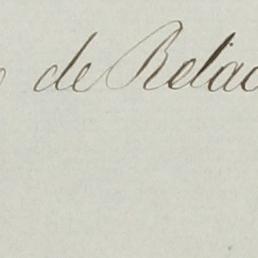 de Relac